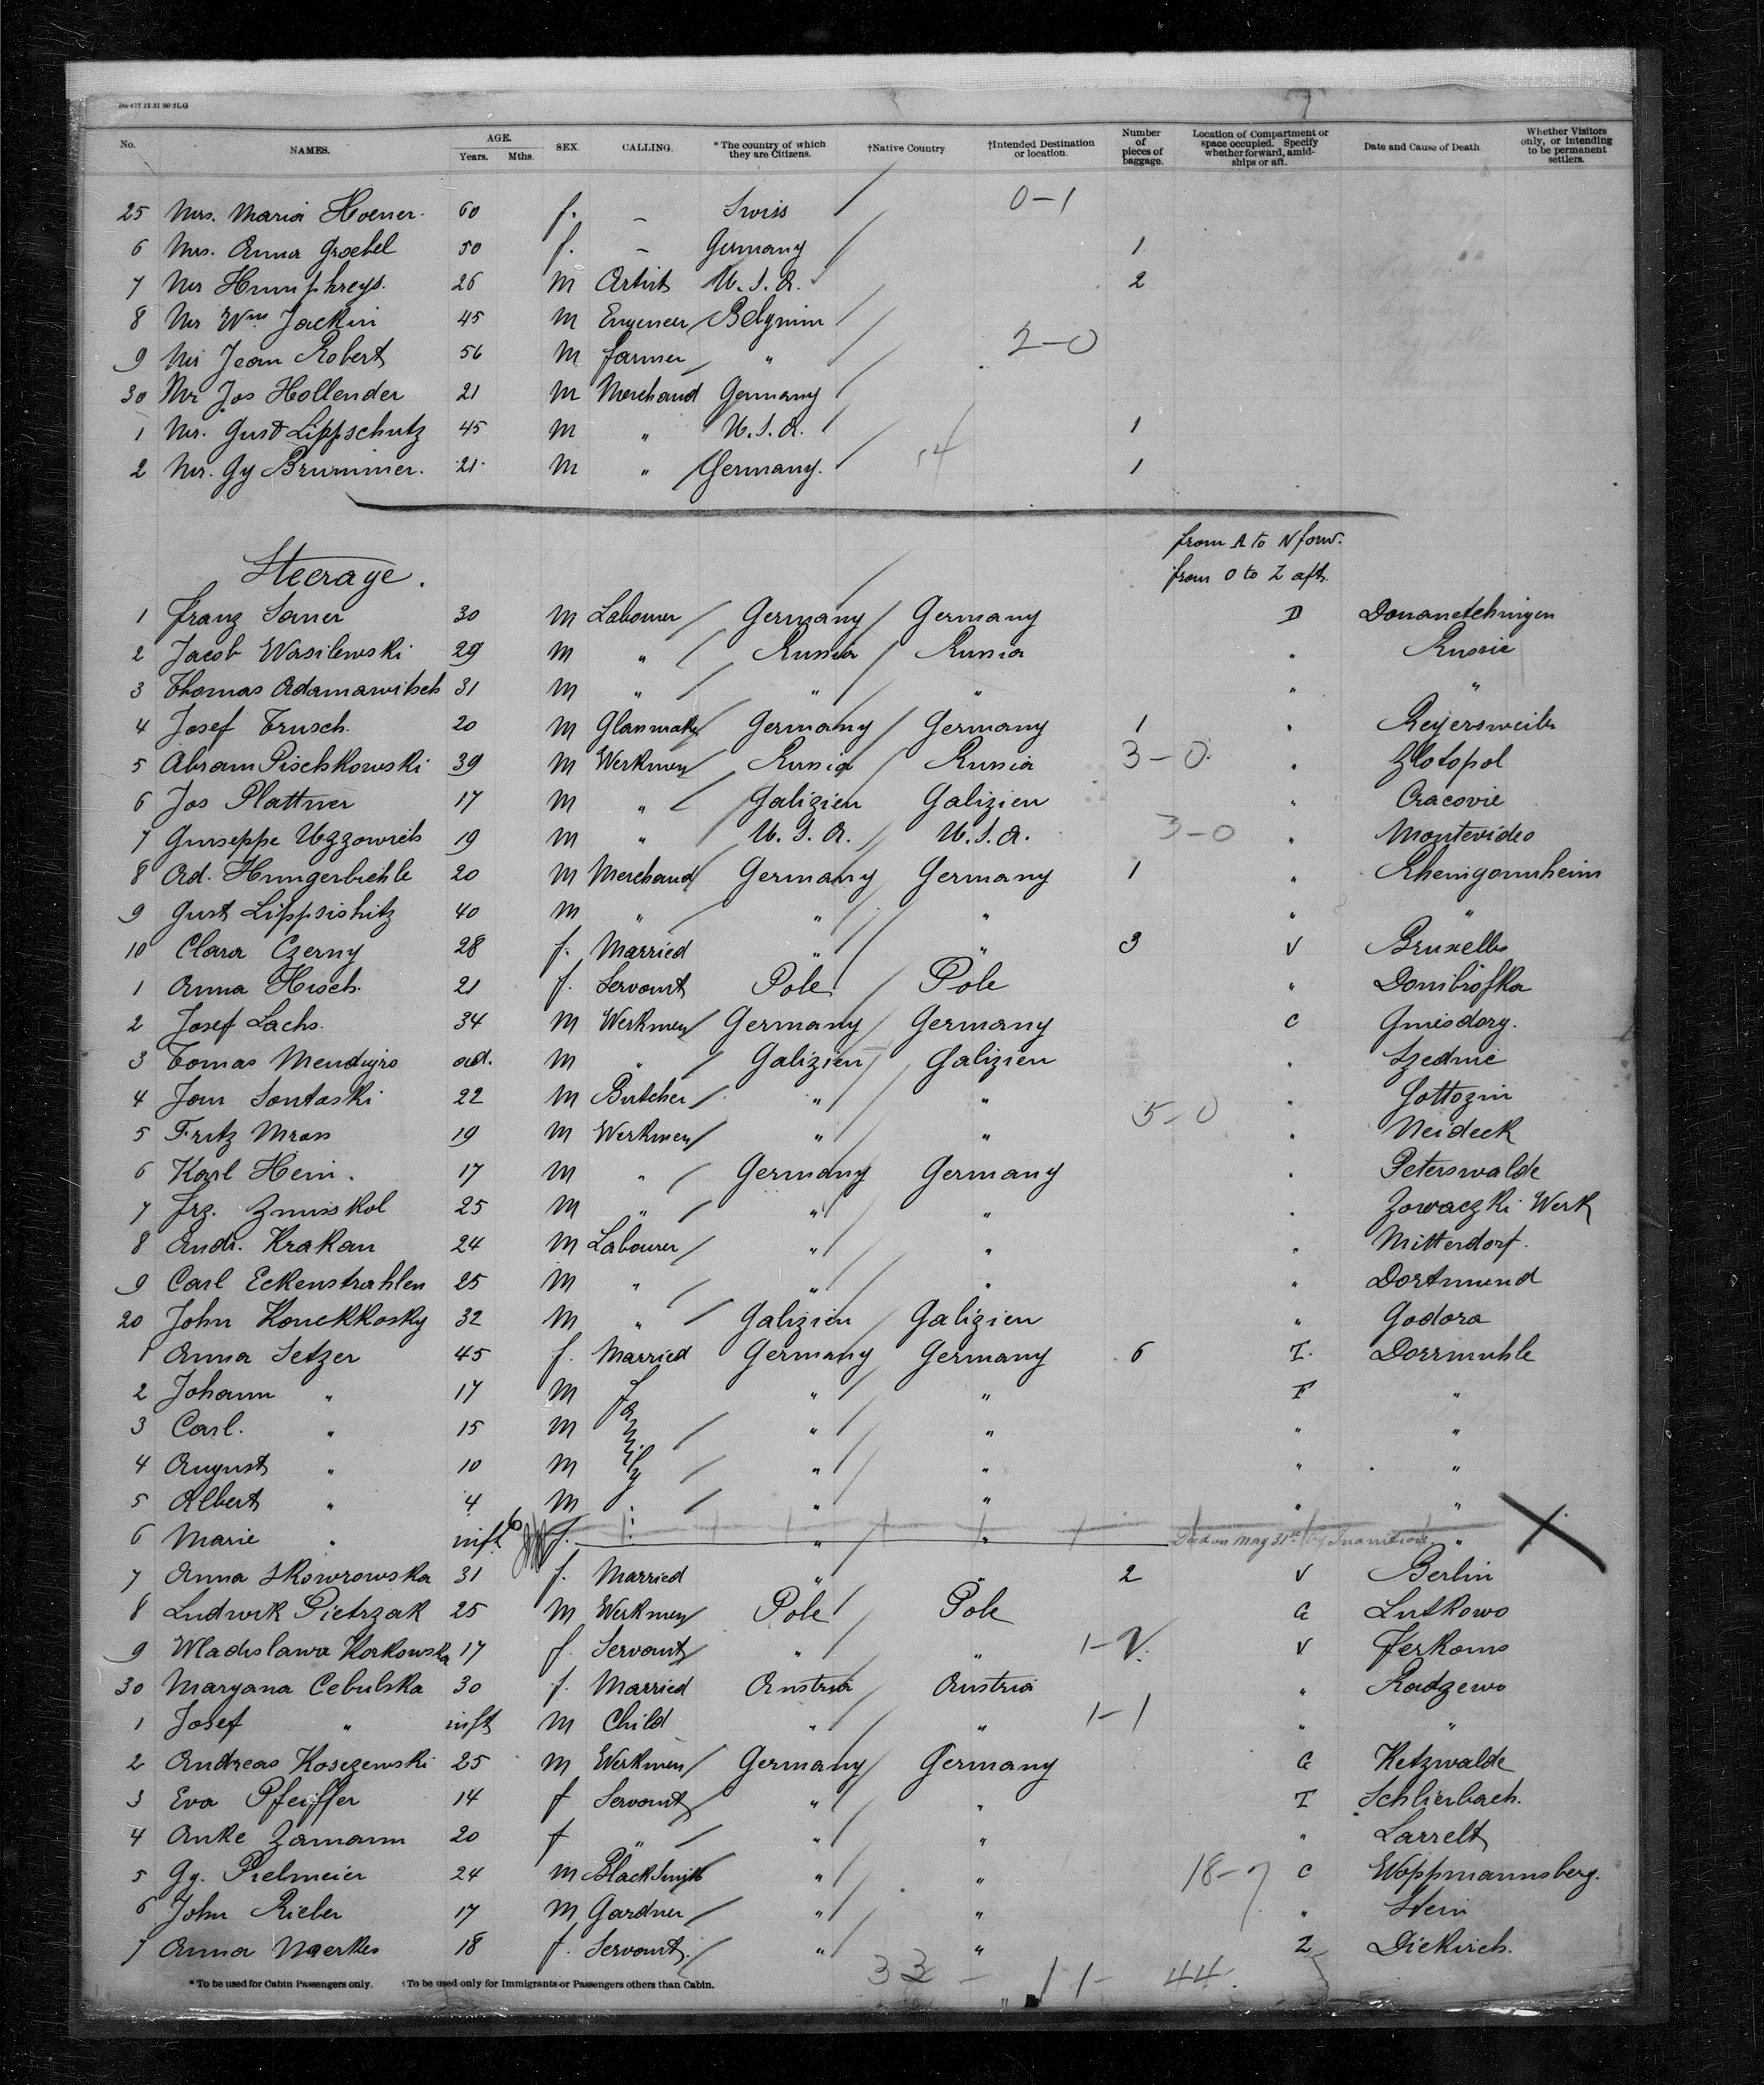 Do 477 12 31 90 2LG
No. NAMES. AGE. Years. Mths. SEX CALLING. * The country of which they are Citizens. †Native Country †Intended Destination or location. Number of pieces of baggage. Location of Compartment or space occupied. Specify whether forward, amid-ships or aft. Date and Cause of Death Whether Visitors only, or intending to be permanent settlers.
25 Mrs. Maria Hoener. 60 f. – Swiss 0–1
6 Mrs. Anna Groebel 50 f. – Germany 1
7 Mr Humphreys. 26 M Artist U.S.A. 2
8 Mr Wm Jackin 45 M Engeneer Belgium
9 Mr Jean Robert 56 M farmer " 2–0
30 Mr Jos Hollender 21 M Merchand Germany
1 Mr. Gust Lippschutz 45 M " U.S.A. 1
2 Mr. Gy Brummer. 21 M " Germany. 1
from A to N forw.
Steerage. from O to Z aft.
1 Franz Saner 30 M Labourer Germany Germany D Donanetchingen
2 Jacob Wasilewski 29 M " Russia Russia " Russie
3 Thomas Adamawitsch 31 M " " " " "
4 Josef Trusch. 20 M Glasmaker Germany Germany 1 " Reyersweiler
5 Abram Pischkowski 39 M Werkmen Russia Russia 3–0 " Zlotopol
6 Jos Plattner 17 M " Galizien Galizien " Cracovie
7 Guiseppe Uzzowich 19 M " U.S.A. U.S.A. 3–0 " Montevideo
8 Ad. Hungerbiehle 20 M Merchand Germany Germany 1 " Rheingonnheim
9 Gust Lippsishitz 40 M " " " " "
10 Clara Czerny 28 f. Married " " 3 V Bruxelles
1 Anna Hisch. 21 f. Servant Pole Pole " Donibrofka
2 Josef Lachs. 34 M Werkmen Germany Germany C Gnisdorg.
3 Tomas Mendygro ad. M " Galizien Galizien " Szednie
4 Jan Sontaski 22 M Butcher " " 5–0 " Gottozin
5 Fritz Mross 19 M Werkmen " " " Neideck
6 Karl Hein. 17 M " Germany Germany " Peterswalde
7 Frz. Zmiskol 25 M " " " " Zowaczki Werk
8 Andr. Krakan 24 M Labourer " " " Mitterdorf.
9 Carl Eckenstrahlen 25 M " " " " Dortmund
20 John Konekkosky 32 M " Galizien Galizien " Godora
1 Anna Setzer 45 f. Married Germany Germany 6 I. Dorrmuhle
2 Johann " 17 M Family " " F "
3 Carl. " 15 M " " " "
4 August " 10 M " " " "
5 Albert " 4 M " " " "
6 Marie " inft 6 f. " " Died on May 31st by Inanition "
7 Anna Skowrowska 31 f. Married " " 2 V Berlin
8 Ludwik Pietrzak 25 M Werkmen Pole Pole G Lutkowo
9 Wladislawa Korkowska 17 f. Servant " " V Jerkows
30 Maryana Cebulska 30 f. Married Austria Austria " Radzewo
1 Josef " inft M Child " " 1–1 " "
2 Andreas Kosczewski 25 M Werkmen Germany Germany G Ketzwalde
3 Eva Pfeiffer 14 f Servant " " I Schlierbach.
4 Anke Zamann 20 f " " " " Larrelt
5 Gg. Pielmeier 24 M BlackSmith " " 18–7 C Woppmannsberg.
6 John Rieber 17 M Gardner " " " Stein
7 Anna Naerkes 18 f. Servant. " " Z Diekirch.
33 – 11 – 44
* To be used for Cabin Passengers only. †To be used only for Immigrants or Passengers others than Cabin.